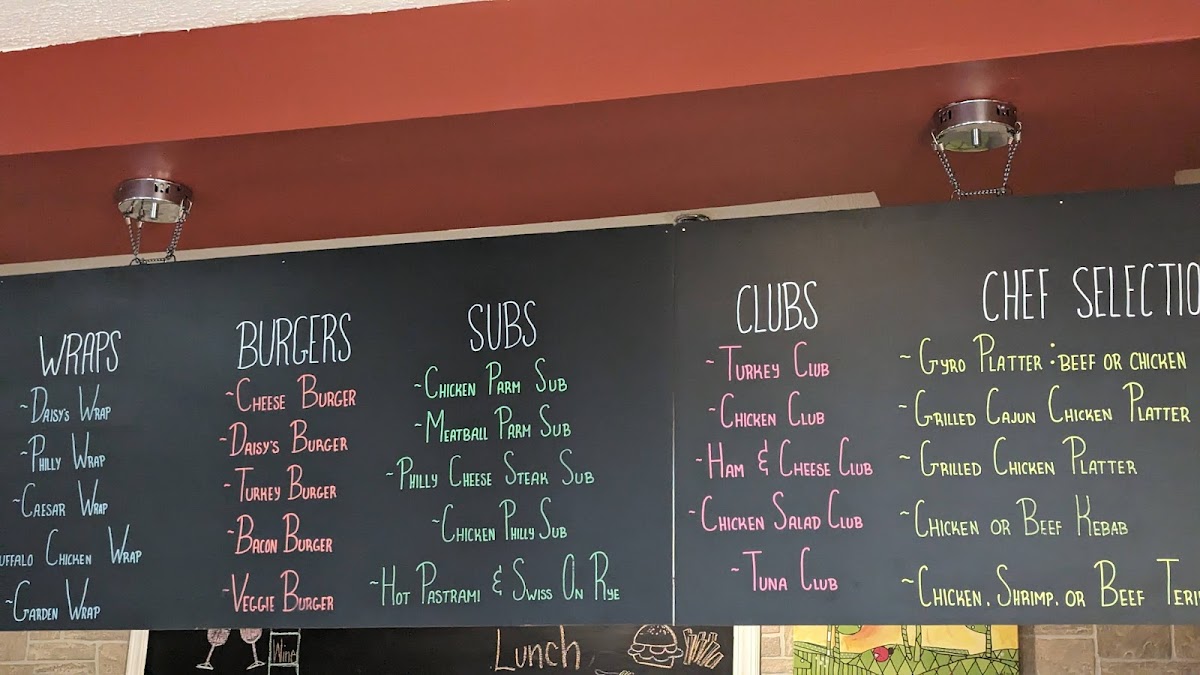 WRAPS
~DAISY'S WRAP
~PHILLY WRAP
~CAESAR WRAP
CHICKEN WRAP
~GARDEN WRAP
BURGERS
~CHEESE BURGER
~DAISY'S BURGER
~TURKEY BURGER
~BACON BURGER
~VEGGIE BURGER
SUBS
~CHICKEN PARM SUB
~MEATBALL PARM SUB
~PHILLY CHEESE STEAK SUB
~CHICKEN PHILLY SUB
~HOT PASTRAMI & SWISS ON RYE
CLUBS
~TURKEY CLUB
~CHICKEN CLUB
~HAM & CHEESE CLUB
~CHICKEN SALAD CLUB
~TUNA CLUB
CHEF
~GYRO PLATTER: BEEF OR CHICKEN
~GRILLED CAJUN CHICKEN PLATTER
~GRILLED CHICKEN PLATTER
~CHICKEN OR BEEF KEBAB
~CHICKEN, SHRIMP, OR BEEF
Wine
Lunch